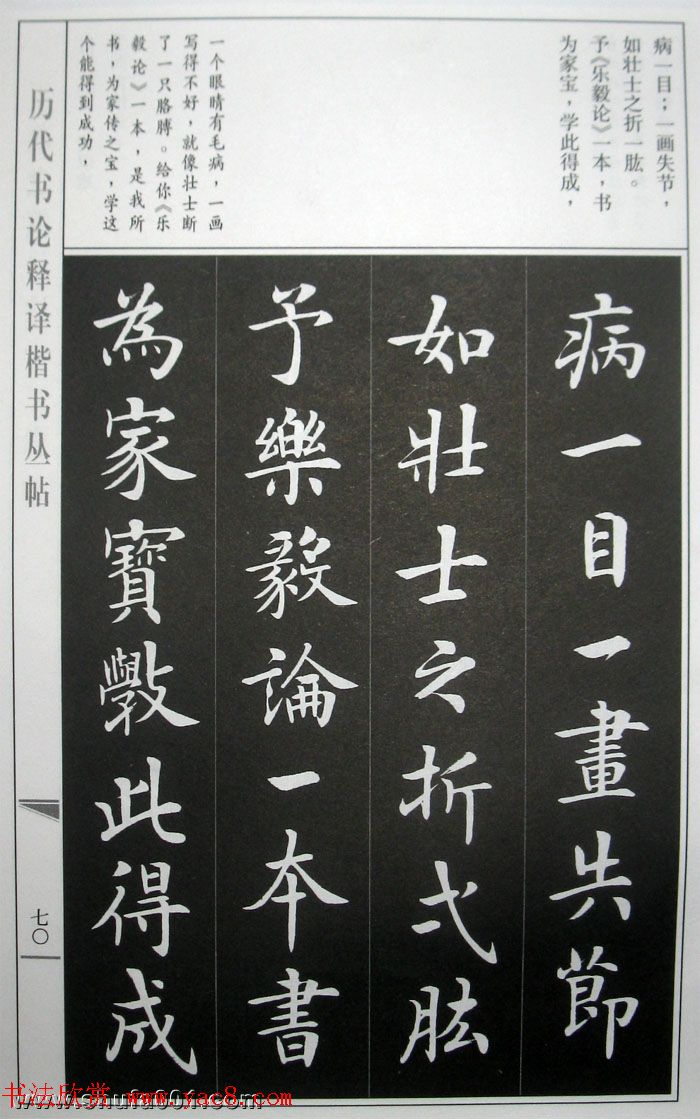 病一目；一画失节，
如壮士之折一肱。
予《乐毅论》一本，书
为家宝，学此得成，
一个眼睛有毛病，一画
写得不好，就像壮士断
了一只胳膊。给你《乐
毅论》一本，是我所
书，为家传之宝，学这
个能得到成功，
病一目一畫失節
如壯士之折弌肱
予樂毅論一本書
為家寶斆此得成
历代书论释译楷书丛帖
七〇
书法欣赏 www.yac8.com
www.shufa001.com